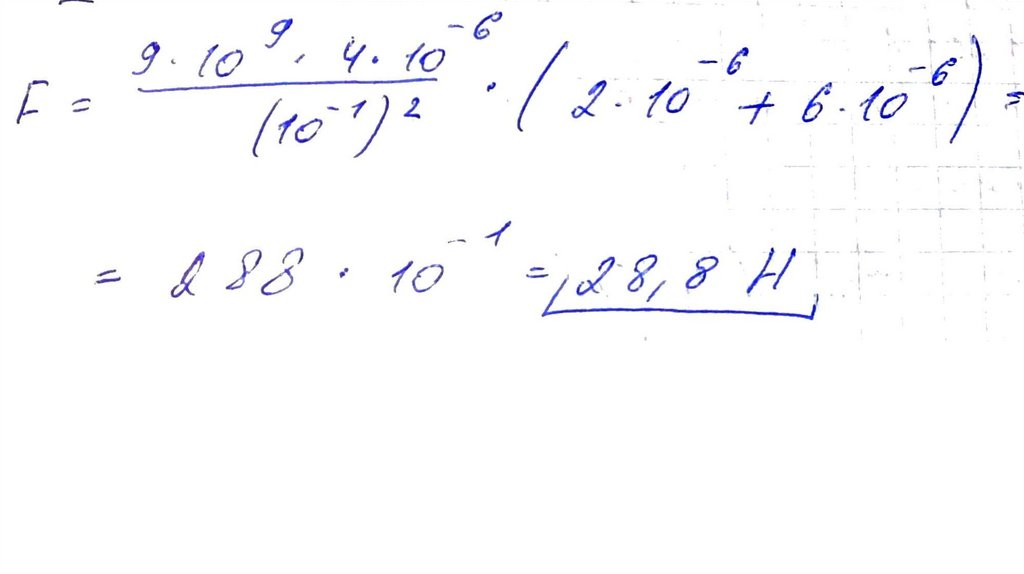 F = 9·10⁹·4·10⁻⁶ / (10⁻¹)² · (2·10⁻⁶ + 6·10⁻⁶) =
= 288·10⁻¹ = 28,8 Н